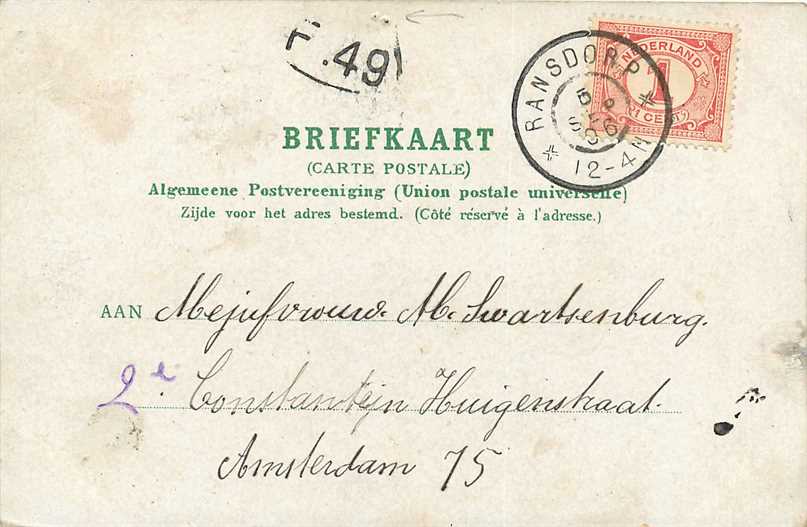 F.49
NEDERLAND
1
1 CENT
RANSDORP
12-4N
BRIEFKAART
(CARTE POSTALE)
Algemeene Postvereeniging (Union postale universelle)
Zijde voor het adres bestemd. (Côté réservé à l'adresse.)
AAN Mejufvrouw. M. Swartsenburg.
2e Constantijn Huigenstraat.
Amsterdam 75